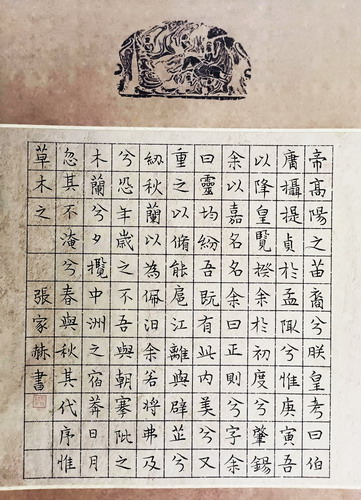 帝高陽之苗裔兮朕皇考曰伯
庸攝提貞於孟陬兮惟庚寅吾
以降皇覽揆余於初度兮肇錫
余以嘉名名余曰正則兮字余
曰靈均紛吾既有此內美兮又
重之以脩能扈江離與辟芷兮
紉秋蘭以為佩汩余若將弗及
兮恐年歲之不吾與朝搴阰之
木蘭兮夕攬中洲之宿莽日月
忽其不淹兮春與秋其代序惟
草木之
張家赫書